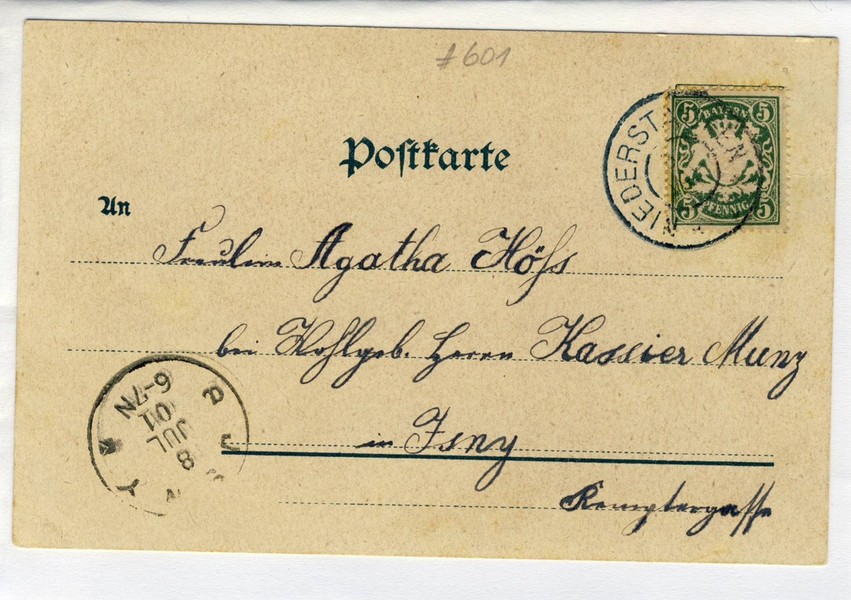 #601
Postkarte
NIEDERSTAUFEN
5 BAYERN 5
5 PFENNIG 5
An
Fräulein Agatha Höß
bei Wohlgeb. Herrn Kassier Munz
in Isny
Kemptergasse
6-7N
01
JUL
8